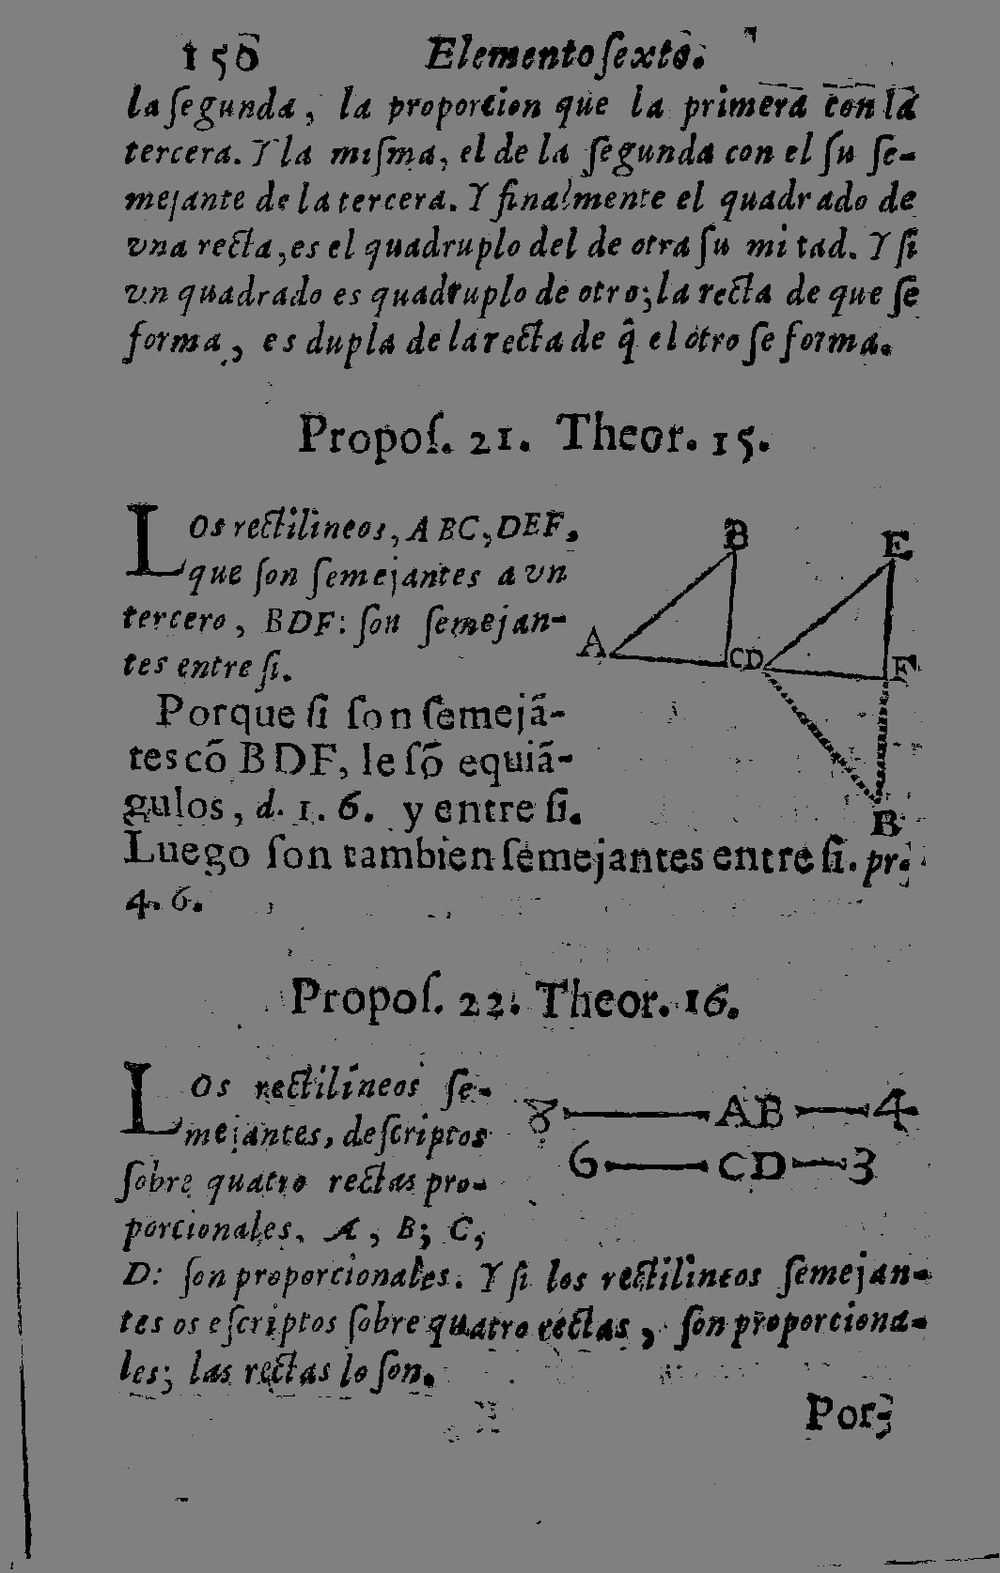 150 Elemento sexto.
la segunda, la proporcion que la primera con la
tercera. Y la misma, el de la segunda con el su se-
mejante de la tercera. Y finalmente el quadrado de
vna recta, es el quadruplo del de otra su mitad. Y si
vn quadrado es quadruplo de otro; la recta de que se
forma, es dupla de la recta de q̃ el otro se forma.
Propos. 21. Theor. 15.
Los rectilineos, ABC, DEF,
que son semejantes a vn
tercero, BDF: son semejan-
tes entre si.
B
E
A
CD
F
B
Porque si son semejã-
tes cõ BDF, le sõ equiã-
gulos, d. 1. 6. y entre si.
Luego son tambien semejantes entre si. pr.
4. 6.
Propos. 22. Theor. 16.
Los rectilineos se-
mejantes, descriptos
sobre quatro rectas pro-
porcionales, A, B; C,
D: son proporcionales. Y si los rectilineos semejan-
tes os escriptos sobre quatro rectas, son proporciona-
les; las rectas lo son.
8 AB 4
6 CD 3
Por-